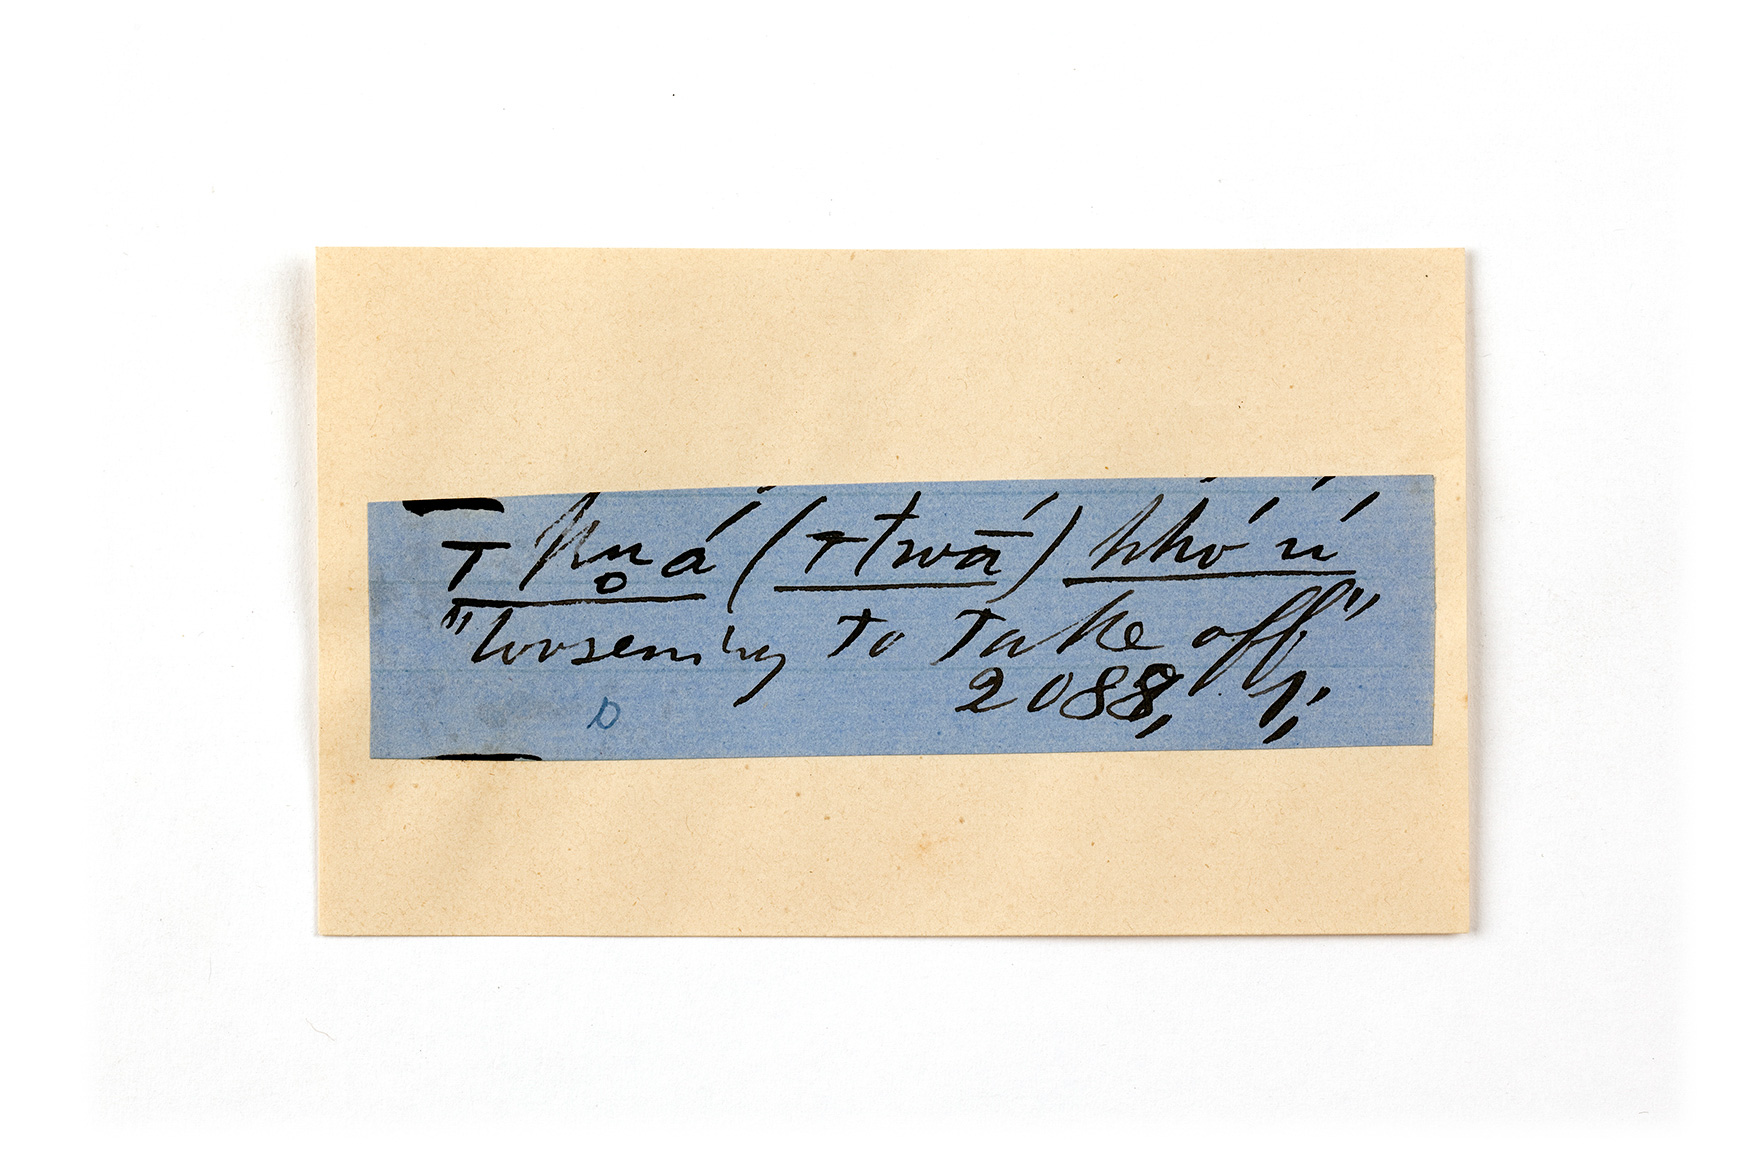 ⊤ k̥uá (⊤twā́) hhó ú
"loosening to take off,"
2088, 1;
D